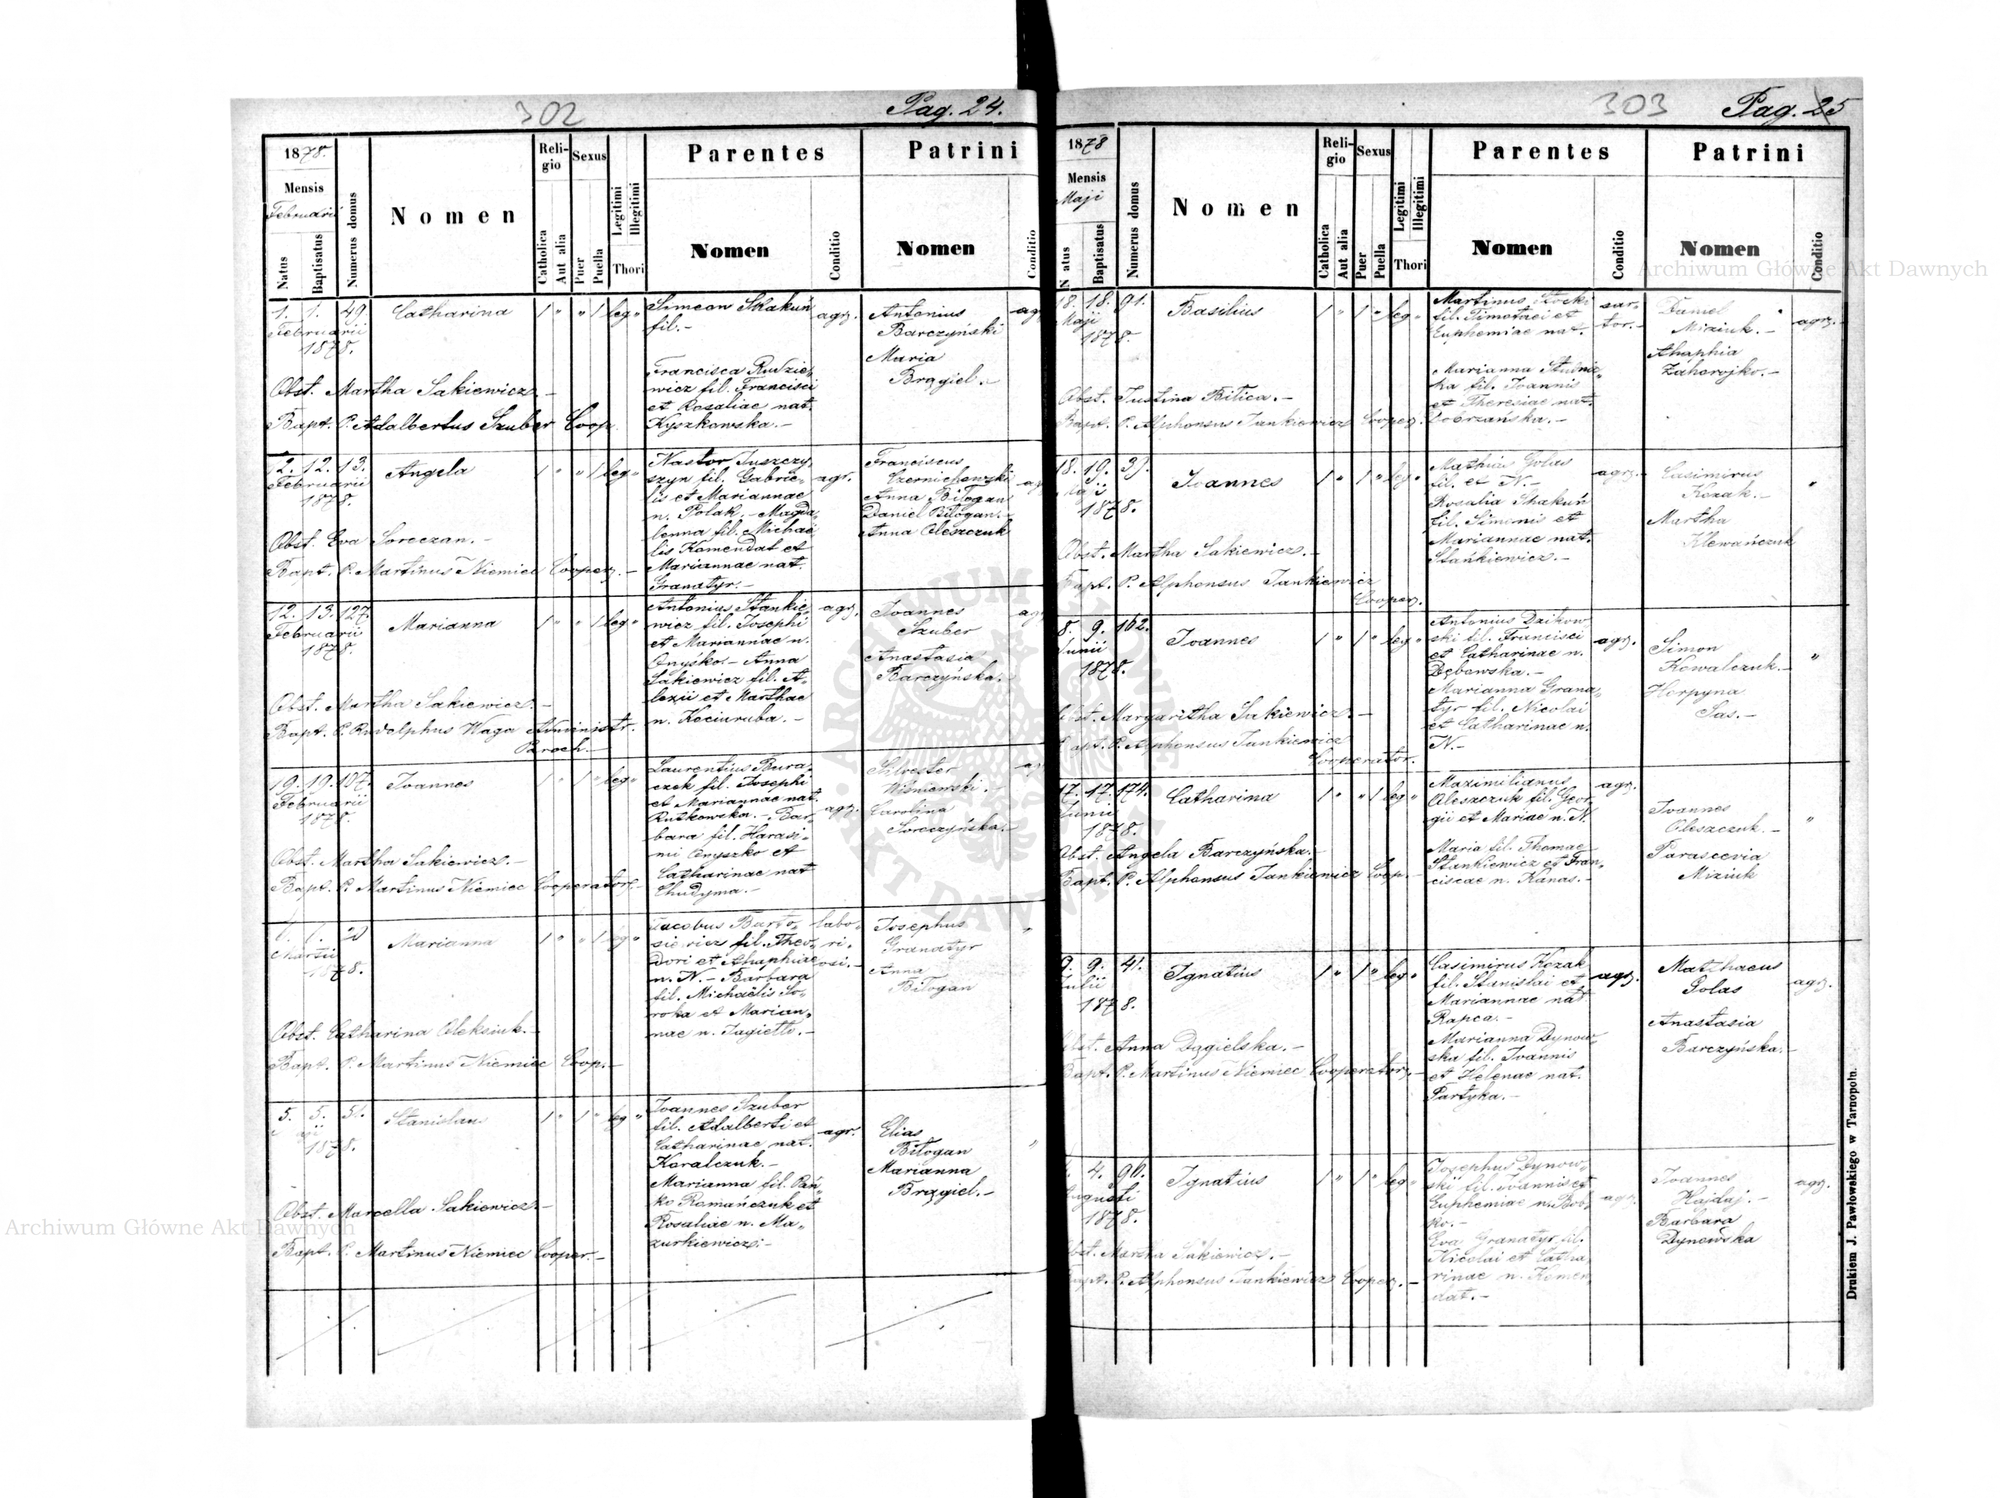 302
Pag. 24.
1878.
Mensis
Februarii
Natus
Baptisatus
Numerus domus
Nomen
Reli-
gio
Catholica
Aut alia
Sexus
Puer
Puella
Legitimi
Illegitimi
Thori
Parentes
Nomen
Conditio
Patrini
Nomen
Conditio
1. 1. 49. Catharina 1 " " 1 leg "
Februarii
1878.
Simeon Skakuń
fil.-
Francisca Rudzie-
wicz fil. Francisci
et Rosaliae nat.
Kyszkowska.-
agr.
Antonius
Barczyński
Maria
Brągiel.-
agr
Obst. Martha Sakiewicz.-
Bapt. P. Adalbertus Szuber Coop.
12. 12. 13. Angela 1 " " 1 leg "
Februarii
1878.
Nastor Juszczy-
szyn fil. Gabrie-
lis et Mariannae
n. Polak.- Magda-
lenna fil. Michaë-
lis Komendat et
Mariannae nat.
Granatyr.-
agr.
Franciscus
Czernichowski
Anna Biłogan
Daniel Biłogan.-
Anna Oleszczuk
Obst. Eva Soreczan.-
Bapt. P. Martinus Niemiec Cooper.-
12. 13. 127. Marianna 1 " " 1 leg "
Februarii
1878.
Antonius Stankie-
wicz fil. Josephi
et Mariannae n.
Onyśko.- Anna
Sakiewicz fil. A-
lexii et Marthae
n. Kociuruba.-
agr.
Joannes
Szuber
Anastasia
Barczyńska.-
Obst. Martha Sakiewicz.-
Bapt. P. Rudolphus Waga Administr.
Paroch.-
19. 19. 107. Joannes 1 " 1 " leg "
Februarii
1878.
Laurentius Bura-
czek fil. Josephi
et Mariannae nat.
Rutkowska.- Bar-
bara fil. Harasi-
mi Onyszko et
Catharinae nat
Chudyma.-
agr.
Silvester
Wiśniewski.-
Carolina
Soreczyńska.-
Obst. Martha Sakiewicz.-
Bapt. P. Martinus Niemiec Cooperator.-
1. 1. Marianna 1 " " 1 leg "
Martii
1878.
Jacobus Barto-
siewicz fil. Theo-
dori et Ahaphiae
n. N.- Barbara
fil. Michaëlis So-
roka et Marian-
nae n. Jagiełło.-
labo-
ri-
osi.-
Josephus
Granatyr
Anna
Biłogan
Obst. Catharina Oleksiuk.-
Bapt. P. Martinus Niemiec Coop.-
5. 5. 51. Stanislaus 1 " 1 " leg "
1878.
Joannes Szuber
fil. Adalberti et
Catharinae nat.
Koralczuk.-
Marianna fil. Pań-
ko Romańczuk et
Rosaliae n. Ma-
zurkiewicz.-
agr.
Elias
Biłogan
Marianna
Brągiel.-
Obst. Marcella Sakiewicz.-
Bapt. P. Martinus Niemiec Cooper.-
303
Pag. 25
1878
Mensis
Maji
Natus
Baptisatus
Numerus domus
Nomen
Reli-
gio
Catholica
Aut alia
Sexus
Puer
Puella
Legitimi
Illegitimi
Thori
Parentes
Nomen
Conditio
Patrini
Nomen
Conditio
18. 18. 91. Basilius 1 " 1 " leg "
Maji
1878.
Martinus
fil. Timothei et
Euphemiae nat.
Marianna Studnic-
ka fil. Joannis
et Theresiae nat.
Dobrzańska.-
sar-
tor.-
Daniel
Miziuk.-
Ahaphia
Zahorojko.-
agr.-
Obst. Justina Bilica.-
Bapt. P. Alphonsus Jankiewicz Cooper.
18. 19. 37. Joannes 1 " 1 " leg "
Maji
1878.
Mathias Golas
fil. et N.-
Rosalia Skakuń
fil. Simonis et
Mariannae nat.
Stańkiewicz.-
agr.
Casimirus
Kozak.-
Martha
Klewańczuk
"
Obst. Martha Sakiewicz.-
Bapt. P. Alphonsus Jankiewicz
Cooper.
8. 9. 162. Joannes 1 " 1 " leg "
Junii
1878.
Antonius Dzikow-
ski fil. Francisci
et Catharinae n.
Dębowska.-
Marianna Grana-
tyr fil. Nicolai
et Catharinae n.
N.-
agr.
Simon
Kowalczuk.-
Horpyna
Sas.-
"
Obst. Margaritha Sakiewicz.-
Bapt. P. Alphonsus Jankiewicz
Cooperator.
17. 17. 174. Catharina 1 " " 1 leg "
Junii
1878.
Maximilianus
Oleszczuk fil. Geor-
gii et Mariae n. N.
Maria fil. Thomae
Stankiewicz et Fran-
ciscae n. Kanas.-
agr.
Joannes
Oleszczuk.-
Parascevia
Miziuk
"
Obst. Angela Barczyńska.-
Bapt. P. Alphonsus Jankiewicz Coop.-
9. 9. 41. Ignatius 1 " 1 " leg "
Julii
1878.
Casimirus Kozak
fil. Stanislai et
Mariannae nat
Rapca.-
Marianna Dynow-
ska fil. Joannis
et Helenae nat.
Partyka.-
agr.
Mathaeus
Golas
Anastasia
Barczyńska.-
agr.
Obst. Anna Dągielska.-
Bapt. P. Martinus Niemiec Cooperator.-
4. 96. Ignatius 1 " 1 " leg "
Augusti
1878.
Josephus Dynow-
ski fil. Joannis et
Euphemiae n. Boh-
ko.-
Eva Granatyr fil.
Nicolai et Catha-
rinae n. Komen-
dat.-
agr.
Joannes
Hajdaj.-
Barbara
Dynowska
agr.
Obst. Martha Sakiewicz.-
Bapt. P. Alphonsus Jankiewicz Cooper.-
Drukiem J. Pawłowskiego w Tarnopolu.
Archiwum Główne Akt Dawnych
Archiwum Główne Akt Dawnych
ARCHIWUM GŁÓWNE AKT DAWNYCH